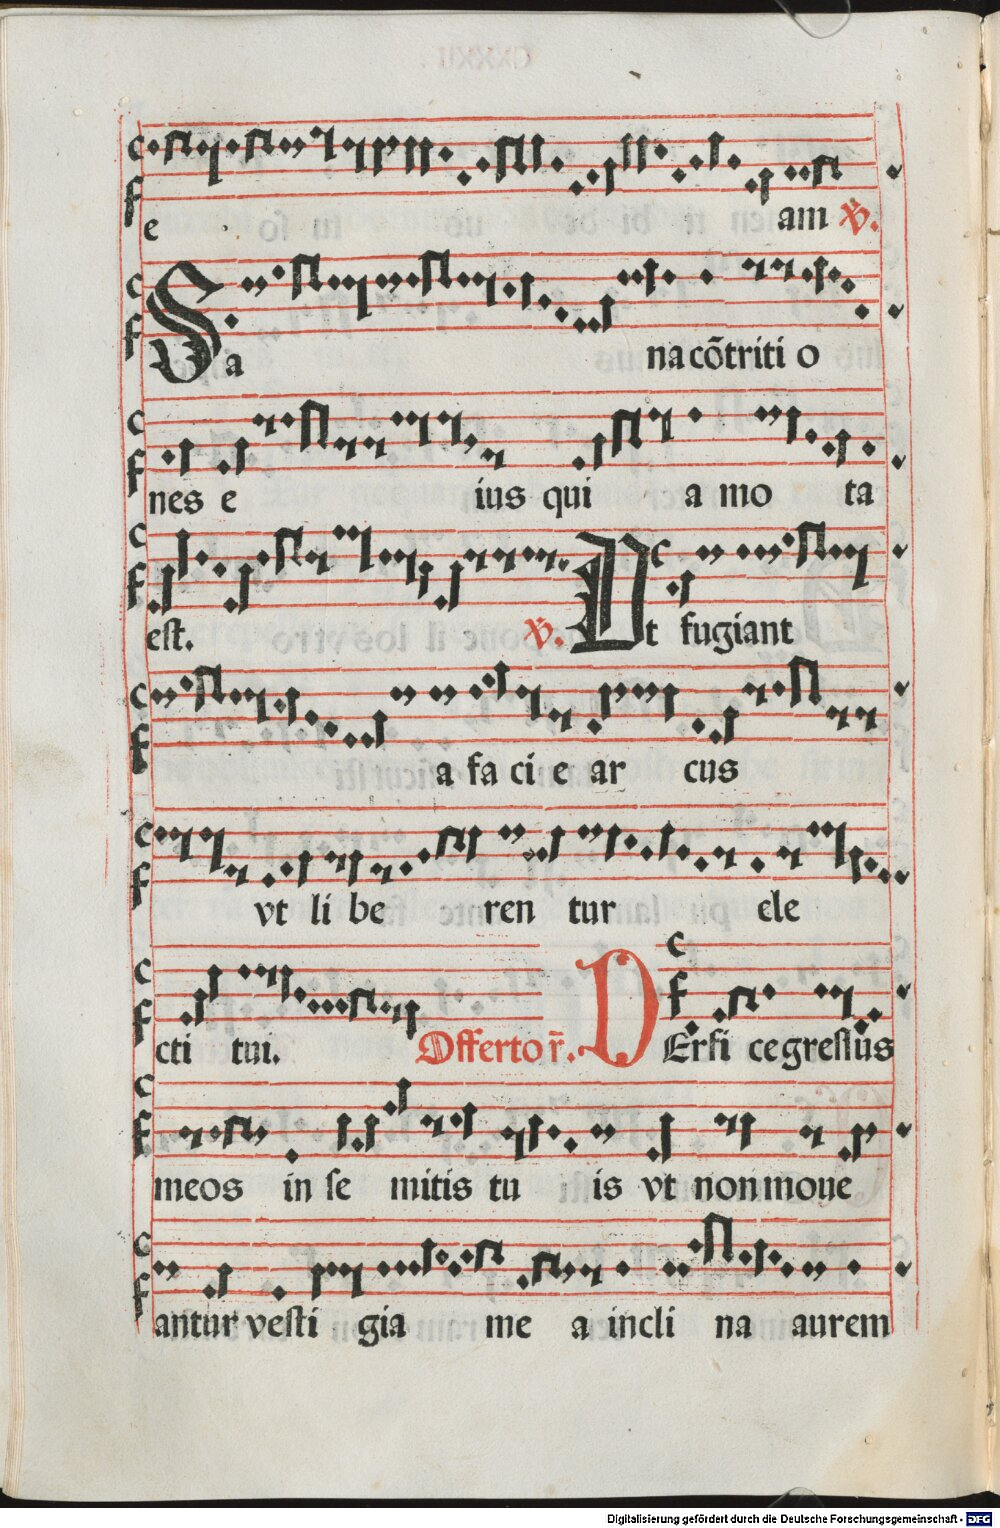 e am ℣.
Sa na cōtriti o
nes e ius qui a mo ta
est. ℣. Ut fugiant
a fa ci e ar cus
vt li be ren tur ele
cti tui. Offertor̄. PErfi ce gressus
meos in se mitis tu is vt non moue
antur vesti gia me a incli na aurem
Digitalisierung gefördert durch die Deutsche Forschungsgemeinschaft - DFG